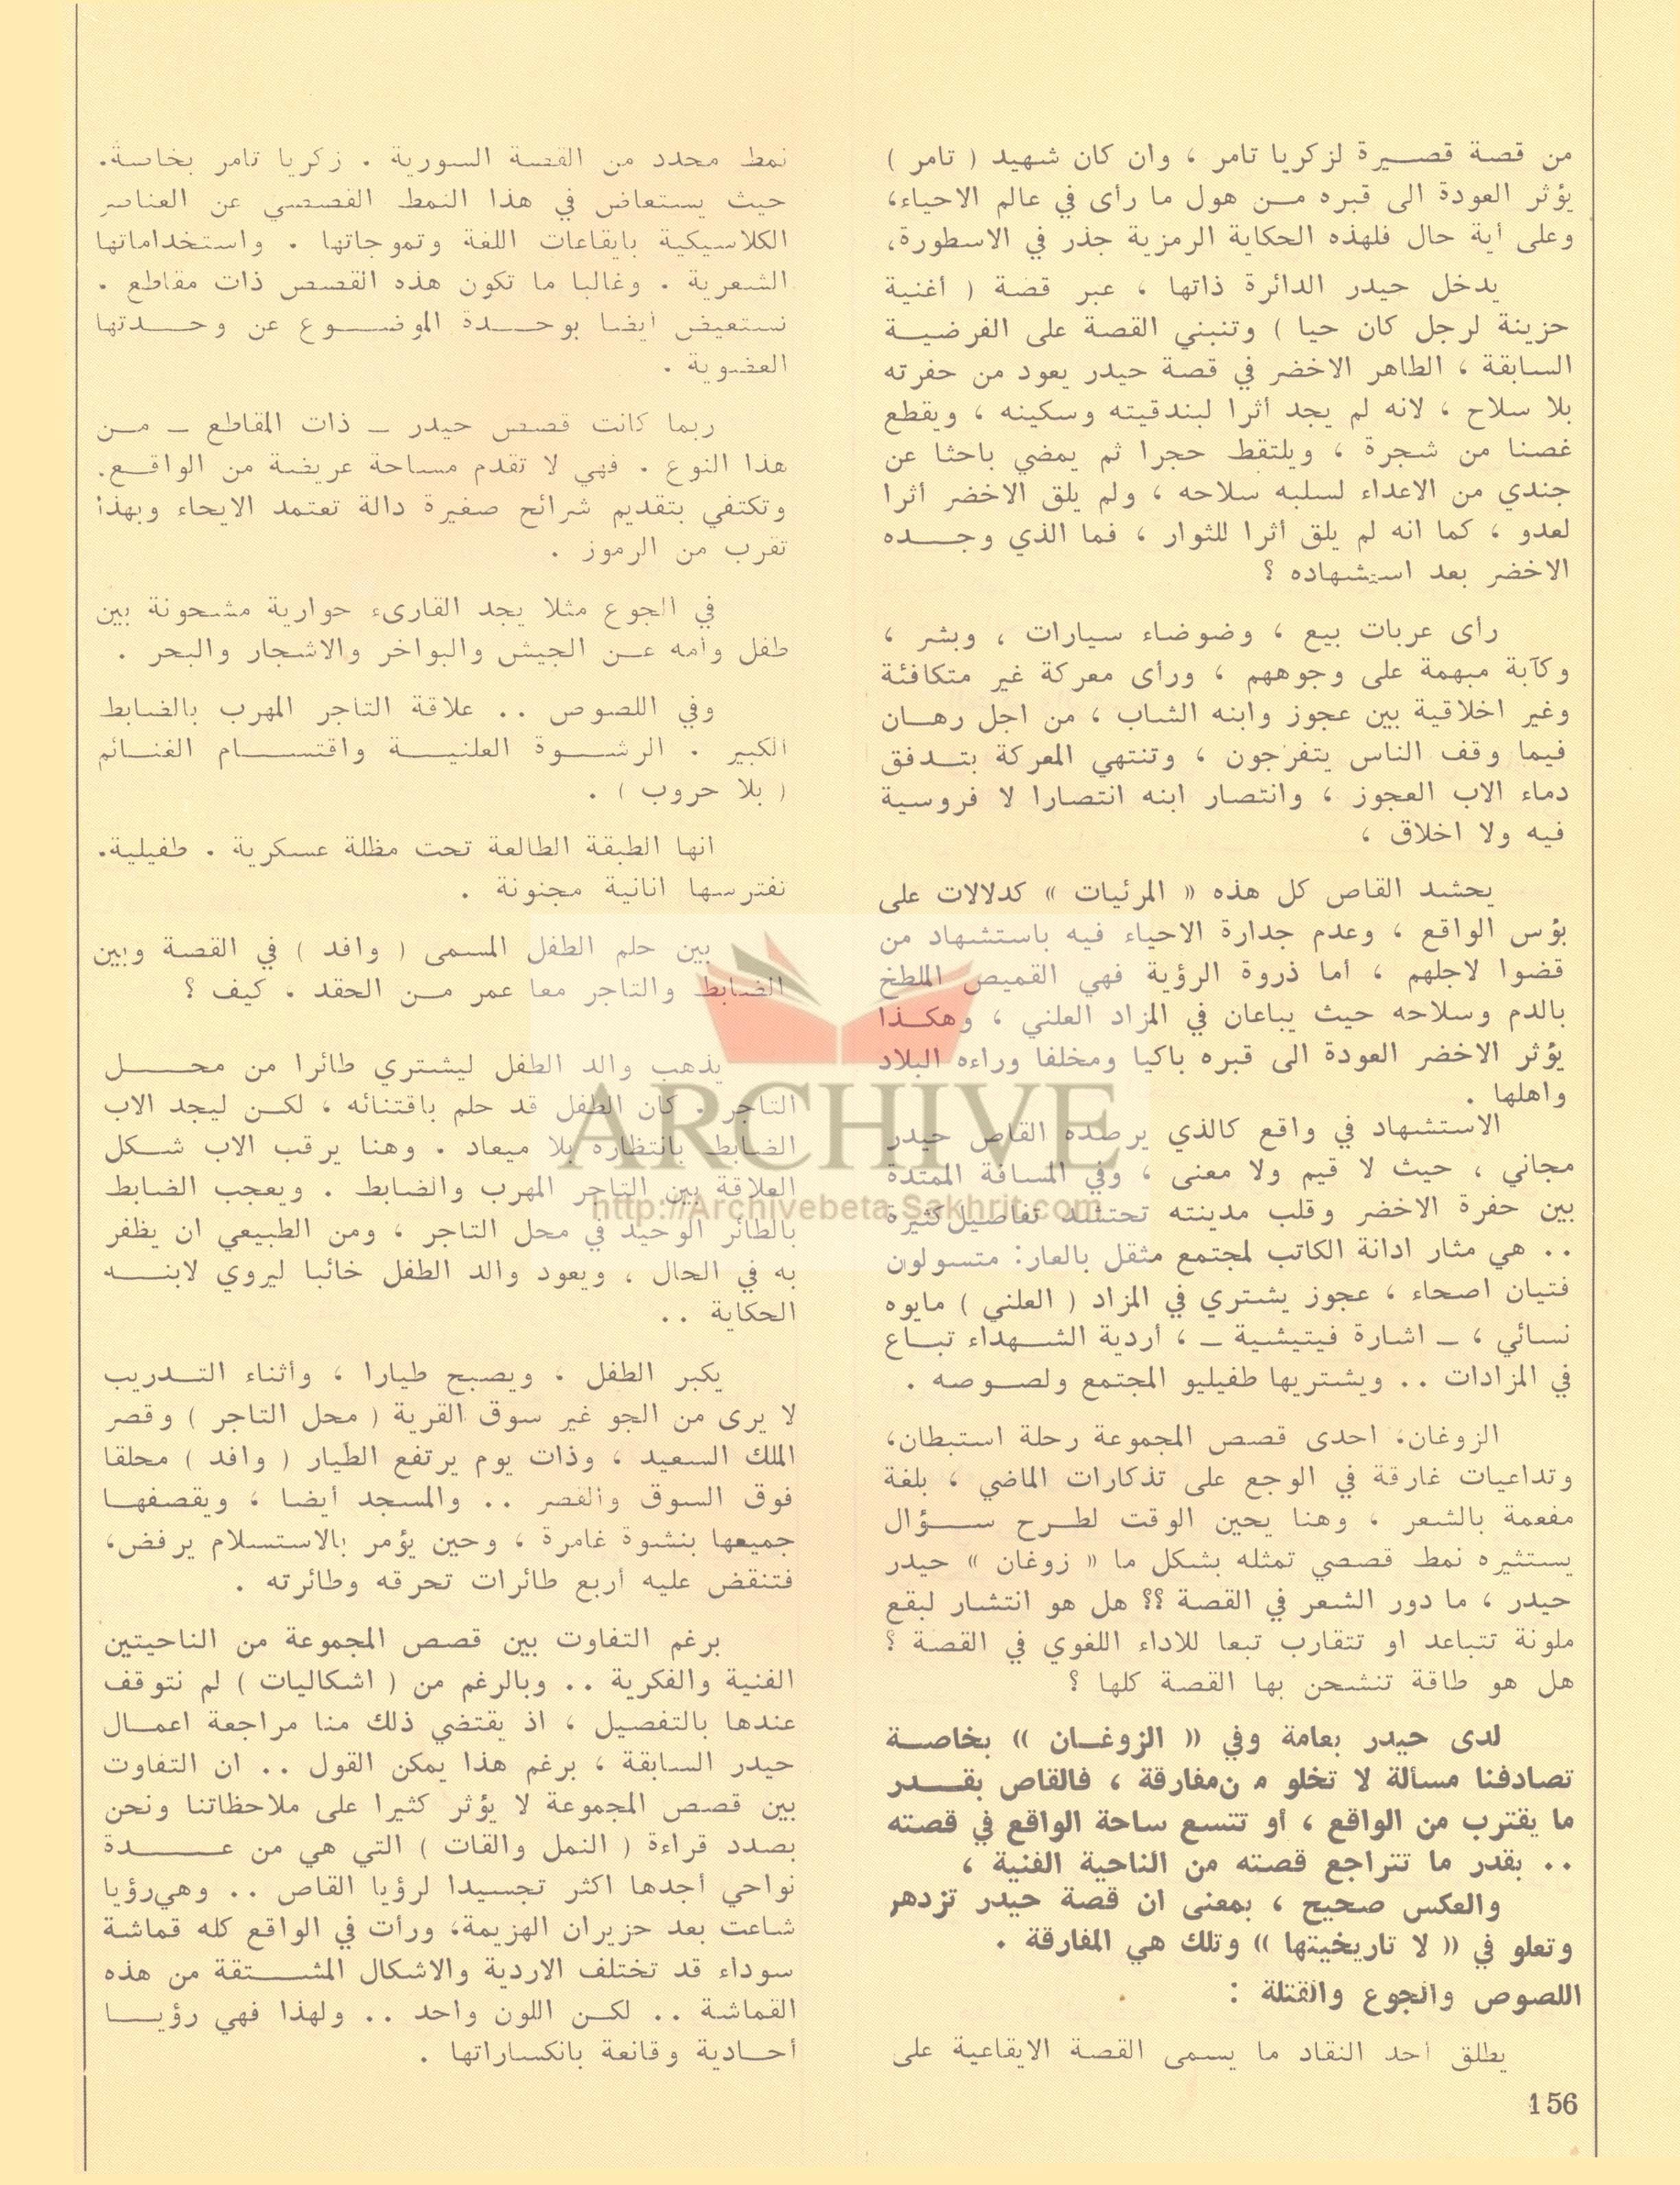 من قصة قصيرة لزكريا تامر ، وان كان شهيد ( تامر )
يؤثر العودة الى قبره من هول ما رأى في عالم الاحياء،
وعلى أية حال فلهذه الحكاية الرمزية جذر في الاسطورة،
يدخل حيدر الدائرة ذاتها ، عبر قصة ( أغنية
حزينة لرجل كان حيا ) وتنبني القصة على الفرضية
السابقة ، الطاهر الاخضر في قصة حيدر يعود من حفرته
بلا سلاح ، لانه لم يجد أثرا لبندقيته وسكينه ، ويقطع
غصنا من شجرة ، ويلتقط حجرا ثم يمضي باحثا عن
جندي من الاعداء لسلبه سلاحه ، ولم يلق الاخضر أثرا
لعدو ، كما انه لم يلق أثرا للثوار ، فما الذي وجده
الاخضر بعد استشهاده ؟
رأى عربات بيع ، وضوضاء سيارات ، وبشر ،
وكآبة مبهمة على وجوههم ، ورأى معركة غير متكافئة
وغير اخلاقية بين عجوز وابنه الشاب ، من اجل رهان
فيما وقف الناس يتفرجون ، وتنتهي المعركة بتدفق
دماء الاب العجوز ، وانتصار ابنه انتصارا لا فروسية
فيه ولا اخلاق ،
يحشد القاص كل هذه « المرئيات » كدلالات على
بؤس الواقع ، وعدم جدارة الاحياء فيه باستشهاد من
قضوا لاجلهم ، أما ذروة الرؤية فهي القميص الملطخ
بالدم وسلاحه حيث يباعان في المزاد العلني ، وهكذا
يؤثر الاخضر العودة الى قبره باكيا ومخلفا وراءه البلاد
واهلها .
الاستشهاد في واقع كالذي يرصده القاص حيدر
مجاني ، حيث لا قيم ولا معنى ، وفي المسافة الممتدة
بين حفرة الاخضر وقلب مدينته تحتشد تفاصيل كثيرة
.. هي مثار ادانة الكاتب لمجتمع مثقل بالعار: متسولون
فتيان اصحاء ، عجوز يشتري في المزاد ( العلني ) مايوه
نسائي ، ـ اشارة فيتيشية ـ ، أردية الشهداء تباع
في المزادات .. ويشتريها طفيليو المجتمع ولصوصه .
الزوغان، احدى قصص المجموعة رحلة استبطان،
وتداعيات غارقة في الوجع على تذكارات الماضي ، بلغة
مفعمة بالشعر ، وهنا يحين الوقت لطرح سؤال
يستثيره نمط قصصي تمثله بشكل ما « زوغان » حيدر
حيدر ، ما دور الشعر في القصة ؟؟ هل هو انتشار لبقع
ملونة تتباعد او تتقارب تبعا للاداء اللغوي في القصة ؟
هل هو طاقة تنشحن بها القصة كلها ؟
لدى حيدر بعامة وفي « الزوغان » بخاصة
تصادفنا مسألة لا تخلو م ن مفارقة ، فالقاص بقدر
ما يقترب من الواقع ، أو تتسع ساحة الواقع في قصته
.. بقدر ما تتراجع قصته من الناحية الفنية ،
والعكس صحيح ، بمعنى ان قصة حيدر تزدهر
وتعلو في « لا تاريخيتها » وتلك هي المفارقة .
اللصوص والجوع والقتلة :
يطلق أحد النقاد ما يسمى القصة الايقاعية على
نمط محدد من القصة السورية . زكريا تامر بخاصة.
حيث يستعاض في هذا النمط القصصي عن العناصر
الكلاسيكية بايقاعات اللغة وتموجاتها . واستخداماتها
الشعرية . وغالبا ما تكون هذه القصص ذات مقاطع .
تستعيض أيضا بوحدة الموضوع عن وحدتها
العضوية .
ربما كانت قصص حيدر ـ ذات المقاطع ـ من
هذا النوع . فهي لا تقدم مساحة عريضة من الواقع.
وتكتفي بتقديم شرائح صغيرة دالة تعتمد الايحاء وبهذا
تقرب من الرموز .
في الجوع مثلا يجد القارىء حوارية مشحونة بين
طفل وأمه عن الجيش والبواخر والاشجار والبحر .
وفي اللصوص .. علاقة التاجر المهرب بالضابط
الكبير . الرشوة العلنية واقتسام الغنائم
( بلا حروب ) .
انها الطبقة الطالعة تحت مظلة عسكرية . طفيلية.
تفترسها انانية مجنونة .
بين حلم الطفل المسمى ( وافد ) في القصة وبين
الضابط والتاجر معا عمر من الحقد . كيف ؟
يذهب والد الطفل ليشتري طائرا من محل
التاجر . كان الطفل قد حلم باقتنائه ، لكن ليجد الاب
الضابط بانتظاره بلا ميعاد . وهنا يرقب الاب شكل
العلاقة بين التاجر المهرب والضابط . ويعجب الضابط
بالطائر الوحيد في محل التاجر ، ومن الطبيعي ان يظفر
به في الحال ، ويعود والد الطفل خائبا ليروي لابنه
الحكاية ..
يكبر الطفل ، ويصبح طيارا ، وأثناء التدريب
لا يرى من الجو غير سوق القرية ( محل التاجر ) وقصر
الملك السعيد ، وذات يوم يرتفع الطيار ( وافد ) محلقا
فوق السوق والقصر .. والمسجد أيضا ، ويقصفها
جميعها بنشوة غامرة ، وحين يؤمر بالاستسلام يرفض،
فتنقض عليه أربع طائرات تحرقه وطائرته .
برغم التفاوت بين قصص المجموعة من الناحيتين
الفنية والفكرية .. وبالرغم من ( اشكاليات ) لم نتوقف
عندها بالتفصيل ، اذ يقتضي ذلك منا مراجعة اعمال
حيدر السابقة ، برغم هذا يمكن القول .. ان التفاوت
بين قصص المجموعة لا يؤثر كثيرا على ملاحظاتنا ونحن
بصدد قراءة ( النمل والقات ) التي هي من عدة
نواحي أجدها اكثر تجسيدا لرؤيا القاص .. وهي رؤيا
شاعت بعد حزيران الهزيمة، ورأت في الواقع كله قماشة
سوداء قد تختلف الاردية والاشكال المشتقة من هذه
القماشة .. لكن اللون واحد .. ولهذا فهي رؤيا
أحادية وقانعة بانكساراتها .
156
ARCHIVE
http://Archivebeta.Sakhrit.com